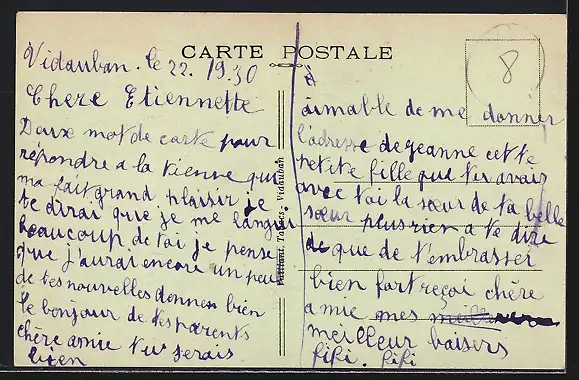 CARTE POSTALE
8
Vidauban. le 22. 1930
Chere Etiennette
Deux mot de carte pour
répondre a la tienne qui
ma fait grand plaisir je
te dirai que je me langui
beaucoup de toi je pense
que j'aurai encore un peu
de tes nouvelles donnes bien
le bonjour de tes parents
chère amie tu serais
bien
Tabacs - Vidauban
a
aimable de me donner
l'adresse de jeanne cette
petite fille que tu avais
avec toi la sœur de ta belle
sœur plus rien a te dire
que de t'embrasser
bien fort reçoi chère
amie mes
meilleur baisers
fifi. fifi